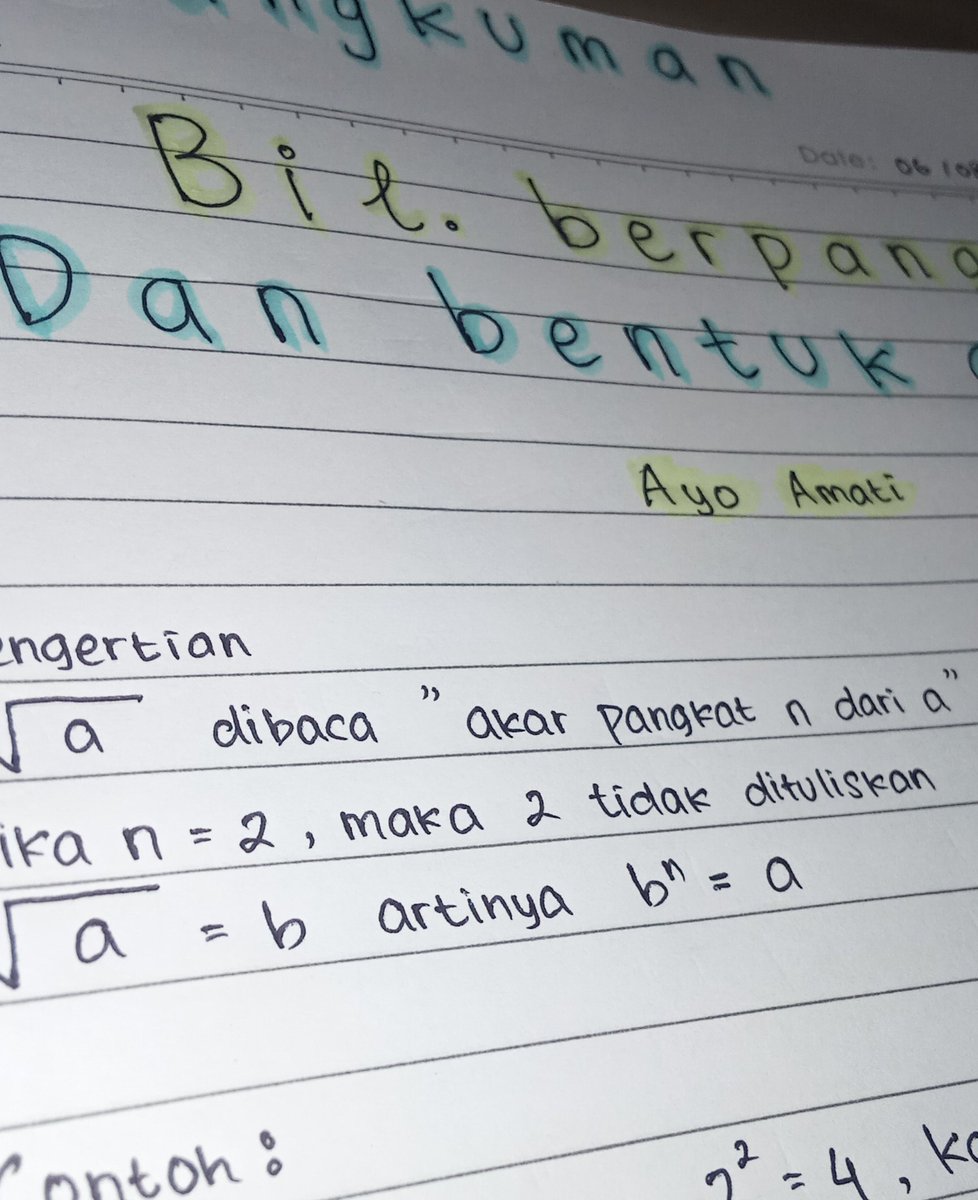 ngkuman
Date: 06 / 08
Bil. berpang
Dan bentuk
Ayo Amati
engertian
√a dibaca " akar pangkat n dari a"
ika n = 2, maka 2 tidak dituliskan
√a = b artinya bⁿ = a
Contoh :
2² = 4, ka